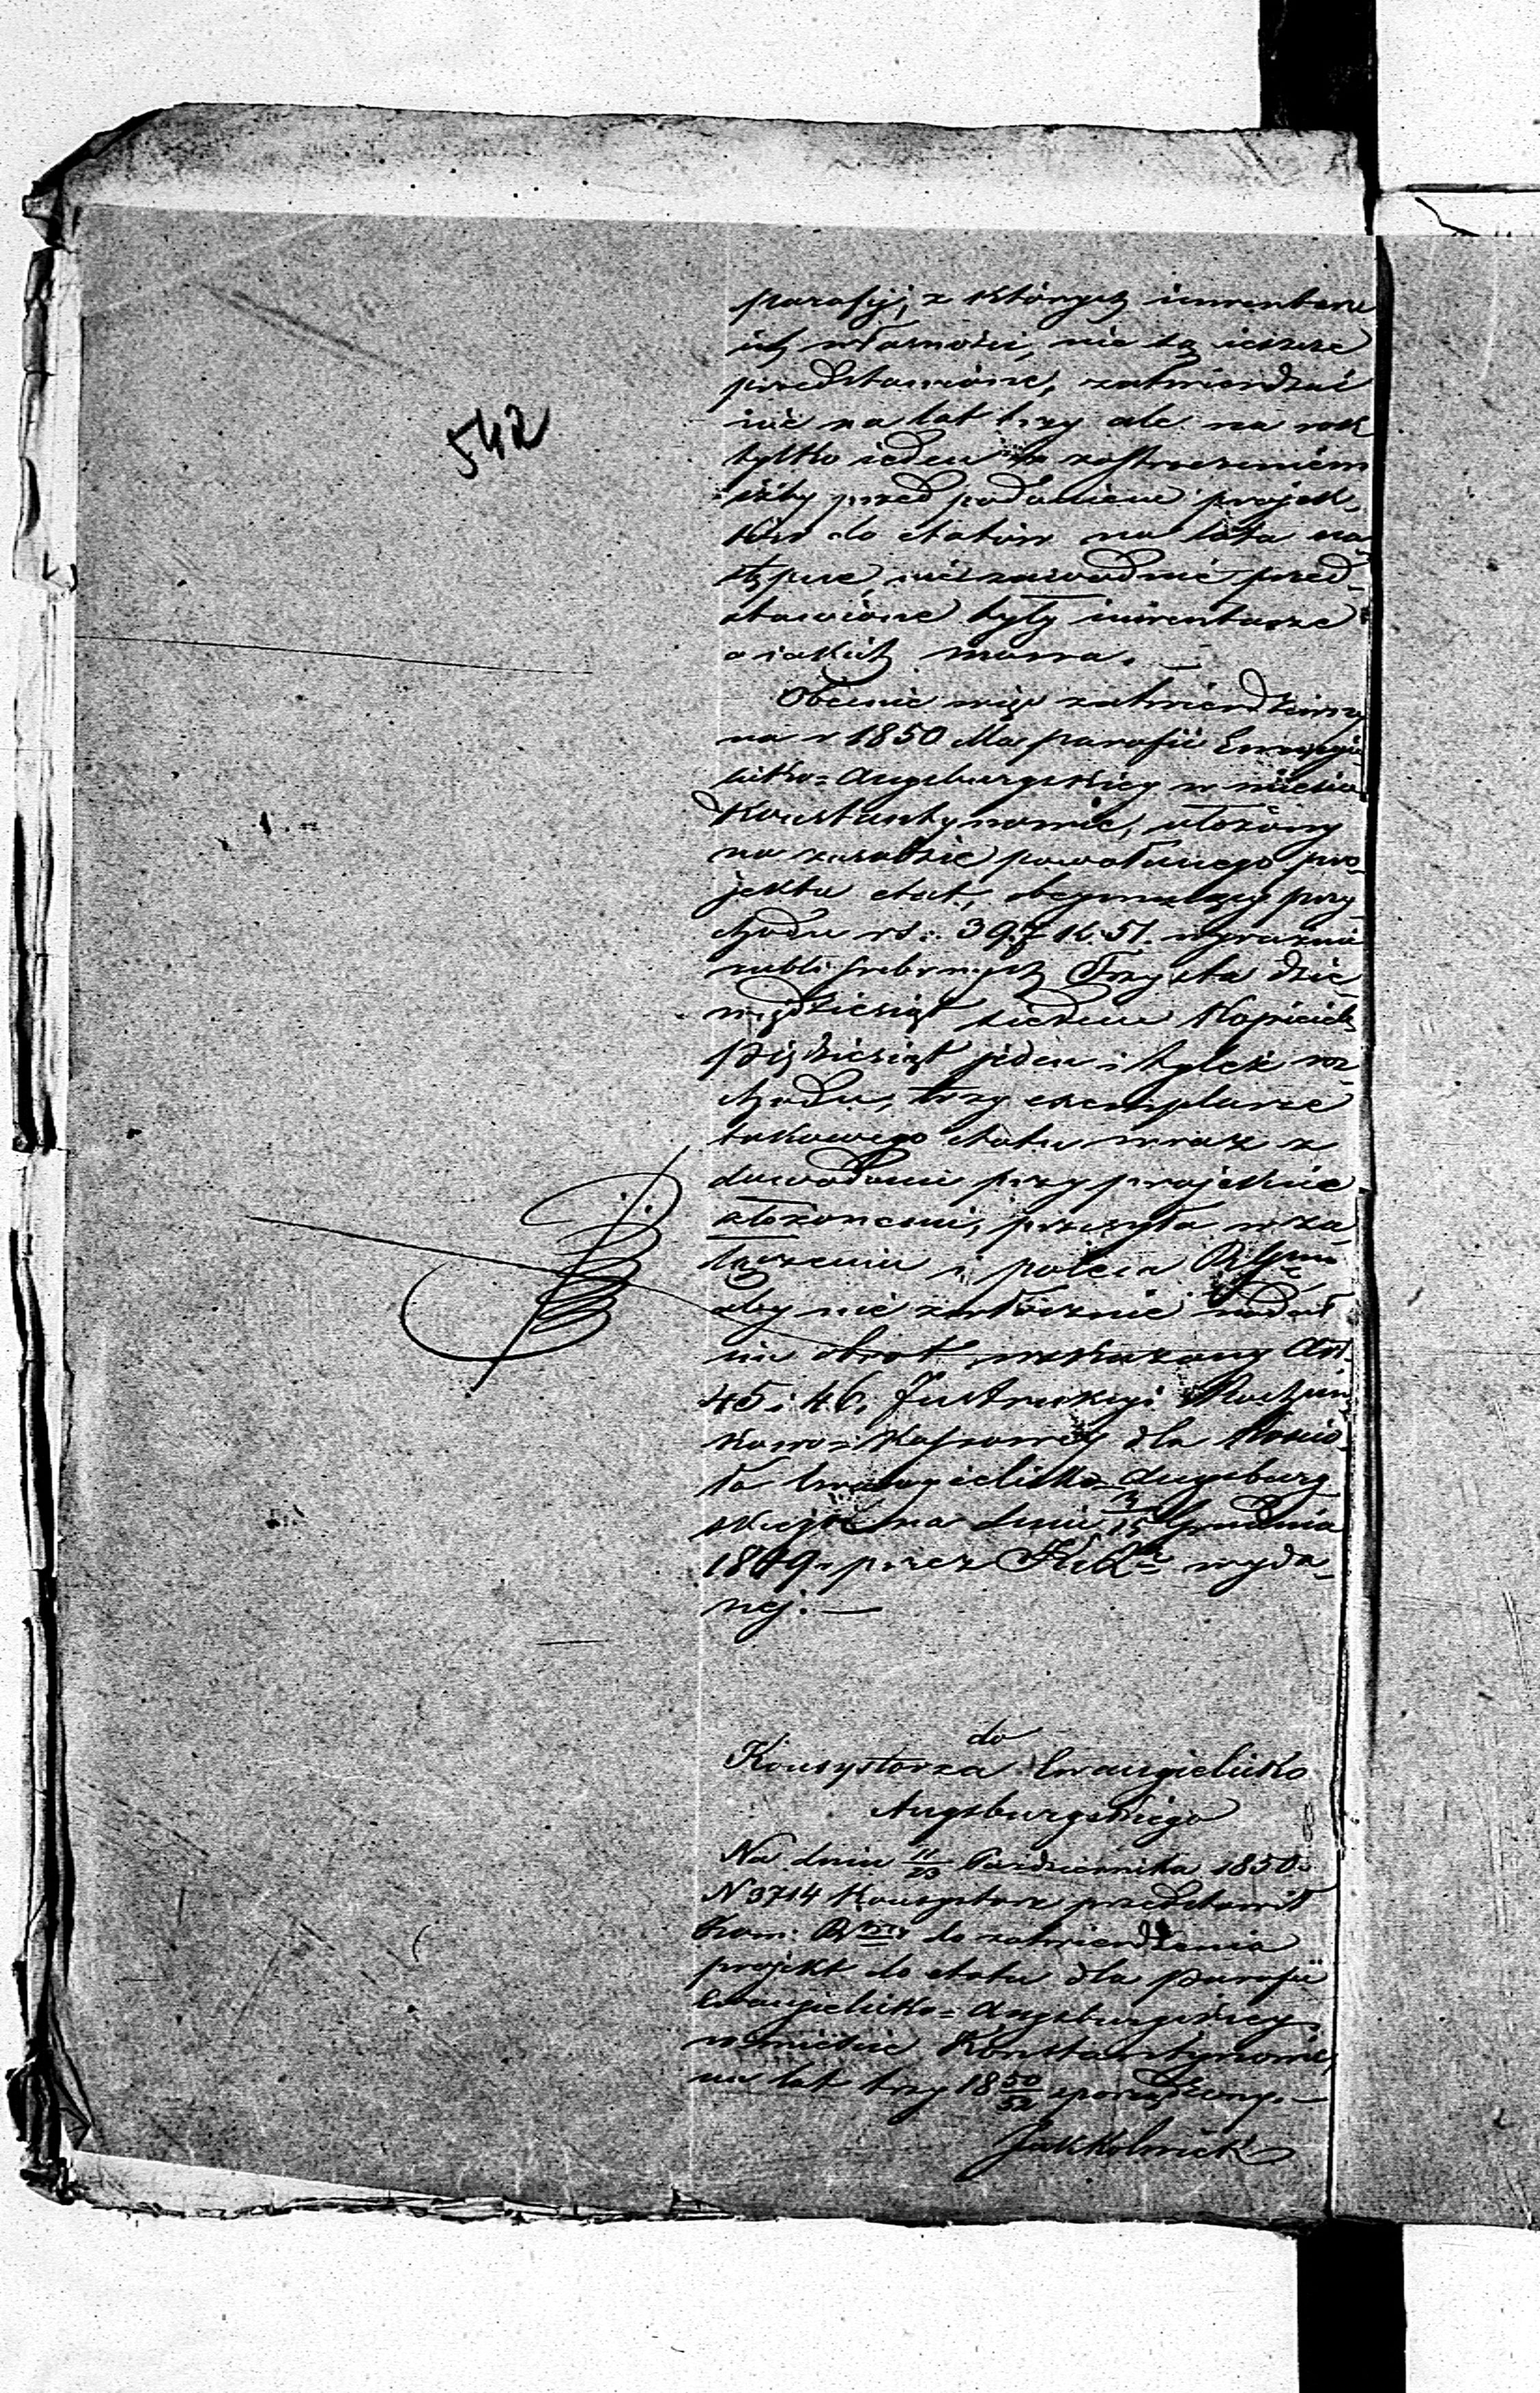 542
parafij, z których inwentarze
ich własności, nie są ieszcze
przedstawione, zatwierdzać
nie na lat trzy ale na rok
tylko ieden z zastrzeżeniem
iżby przed podaniem projek-
tów do etatów na lata na-
stępne, niezawodnie przed-
stawione były inwentarze
o iakich mowa. —
Obecnie więc zatwierdziwszy
na r 1850 dla parafii Ewangie-
licko=Augsburgskiey w mieście
Konstantynowie, ułożony
na zasadzie powołanego pro-
jektu etat, obeymujący przy-
chodu rs: 397 k: 51. wyraźnie
rubli srebrnych Trzysta dzie-
więdziesiąt siedem Kopieiek
pięćdziesiąt jeden i tyleż roz-
chodu, trzy exemplarze
takowego etatu wraz z
dowodami przy projekcie
złożonemi, przesyła w za-
łączeniu i poleca
aby nie zwłócznie nadał
im obrot wskazany Art.
45 i 46. Instrukcyi Rachun-
kowo=Kassowey dla Kościo-
ła Ewangielicko=Augsburg-
skiego na dniu 3/15 Grudnia
1849 r. przez wyda-
nej. —
do
Konsystorza Ewangielicko
Augsburgskiego
Na dniu 11/23 Października 1850 r.
N 3714 Konsystorz przedstawił
Kom: do zatwierdzenia
projekt do etatu dla Parafii
Ewangielicko=Augsburgskiey
w mieście Konstantynowie,
na lat trzy 18 50/52 sporządzony. —